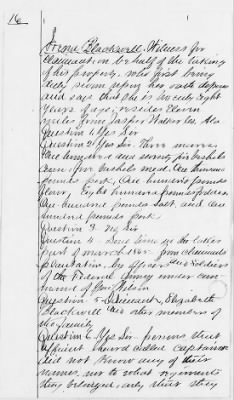 16
Blackwell, Witness for
Claimant on behalf of the taking
of his property, who first being
duly sworn upon her oath deposes
and says that she is twenty Eight
years of age; resides Eleven
miles from Jasper Walker Co. Ala
Question 1 Yes Sir
Question 2 Yes Sir. Three mules
One hundred and seventy five bushels
corn, five bushels meal, One hundred
pounds , One hundred pounds
flour, Eight hundred pounds fodder
One hundred pounds salt, and One
hundred pounds pork
Question 3. No Sir
Question 4. Some time in the latter
part of March 1865 from Claimants
plantation, by officers and soldiers
of the Federal Army under com-
mand of Gen Wilson
Question 5 Claimant, Elizabeth
Blackwell and other members of
the family
Question 6 Yes Sir. persons that
I heard called Captains
did not know any of their
names, nor to what regiments
they belonged, only that they